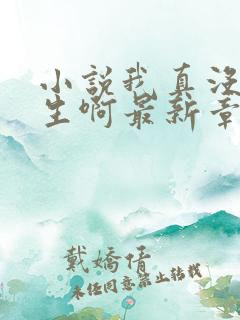 小說我真没
生啊最新章
戴嬌倩
未经同意禁止转载